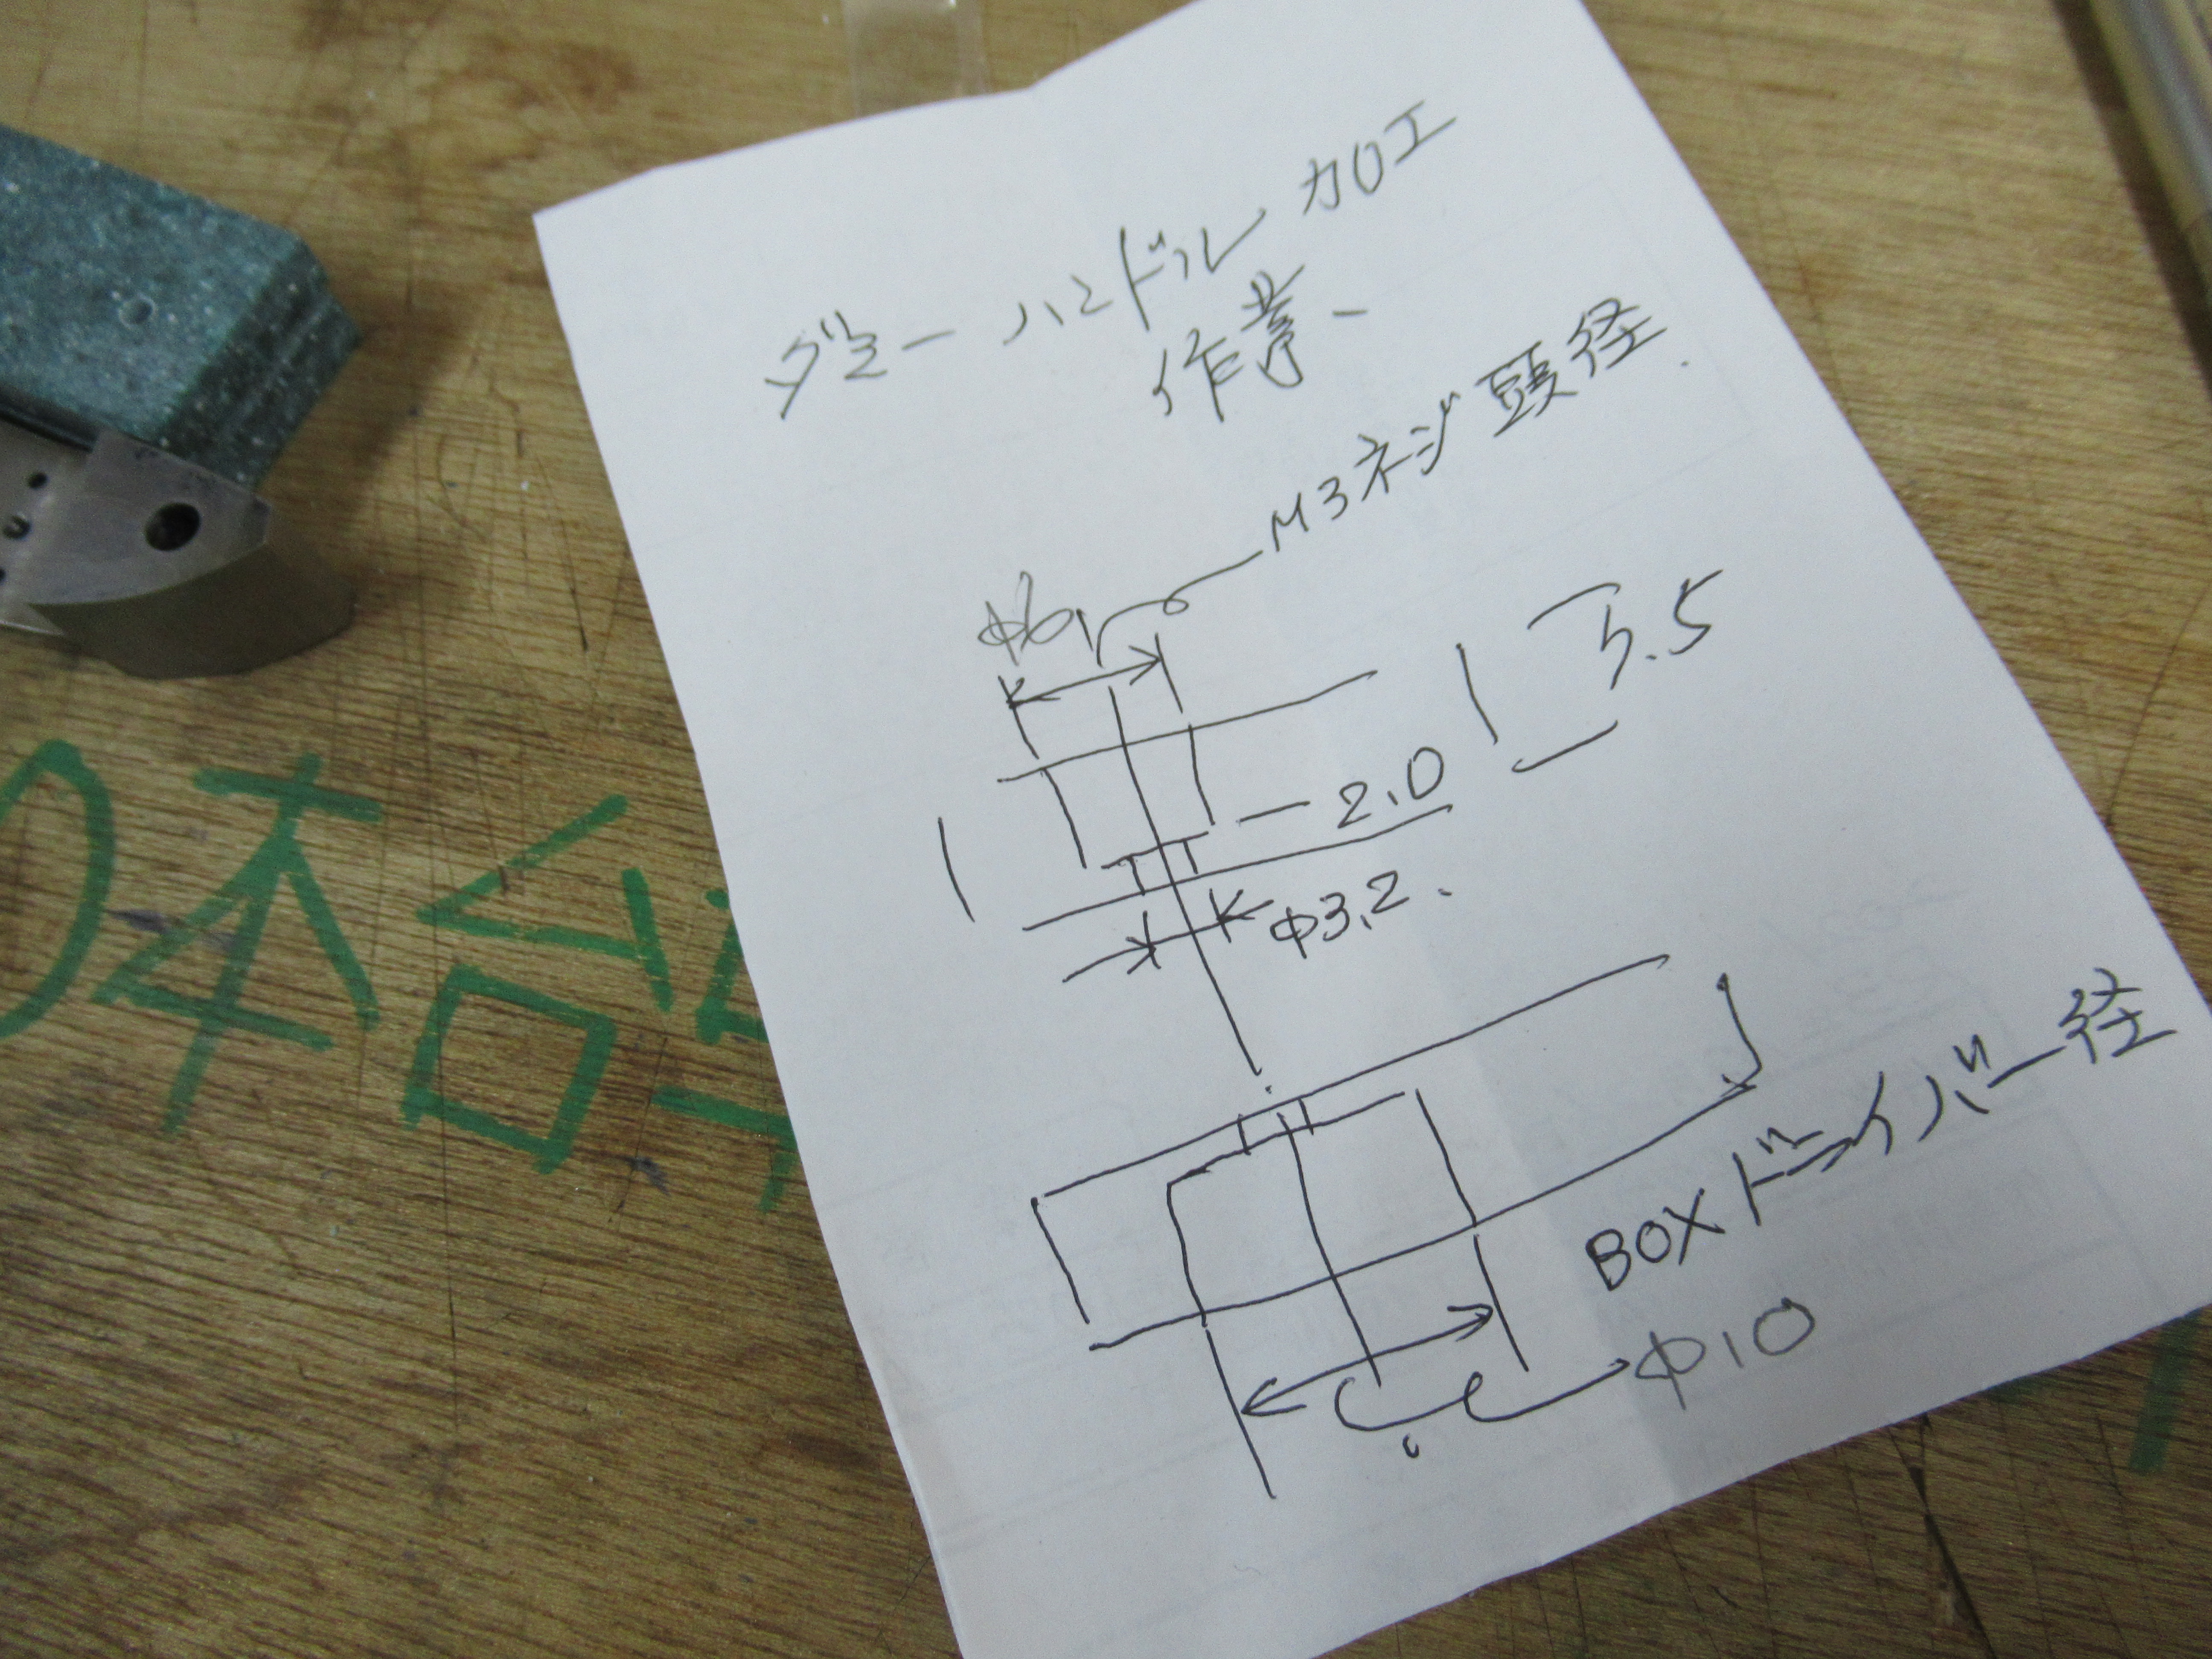 ダミーハンドル加工
作業、
M3ネジ頭径.
φ6
5.5
2.0
φ3.2.
BOXドライバー径
φ10
日本台